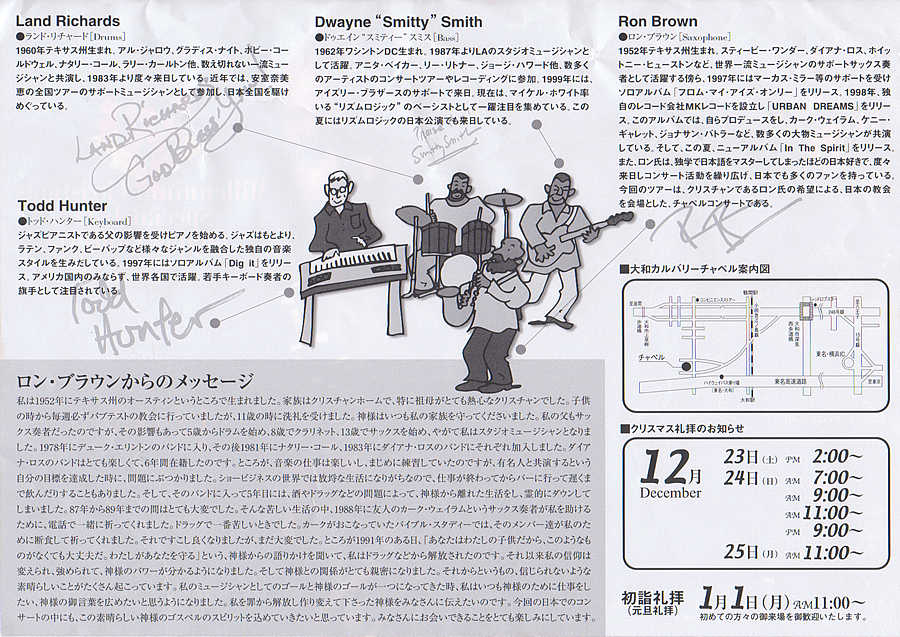 Land Richards
●ランド・リチャード[Drums]
1960年テキサス州生まれ、アル・ジャロウ、グラディス・ナイト、ボビー・コー
ルドウェル、ナタリー・コール、ラリー・カールトン他、数えきれない一流ミュー
ジシャンと共演し、1983年より度々来日している。近年では、安室奈美
恵の全国ツアーのサポートミュージシャンとして参加し、日本全国を駆け
めぐっている。
LAND RICHARDS
GOD BLESS YOU
Dwayne “Smitty” Smith
●ドゥエイン“スミティー”スミス[Bass]
1962年ワシントンDC生まれ、1987年よりLAのスタジオミュージシャンと
して活躍。アニタ・ベイカー、リー・リトナー、ジョージ・ハワード他、数多く
のアーティストのコンサートツアーやレコーディングに参加。1999年には、
アイズリー・ブラザースのサポートで来日。現在は、マイケル・ホワイト率
いる“リズムロジック”のベーシストとして一躍注目を集めている。この
夏にはリズムロジックの日本公演でも来日している。
Smitty Smith
Ron Brown
●ロン・ブラウン[Saxophone]
1952年テキサス州生まれ、スティービー・ワンダー、ダイアナ・ロス、ホイッ
トニー・ヒューストンなど、世界一流ミュージシャンのサポートサックス奏
者として活躍する傍ら、1997年にはマーカス・ミラー等のサポートを受け
ソロアルバム「フロム・マイ・アイズ・オンリー」をリリース。1998年、独
自のレコード会社MKレコードを設立し「URBAN DREAMS」をリリー
ス。このアルバムでは、自らプロデュースをし、カーク・ウェイラム、ケニー・
ギャレット、ジョナサン・バトラーなど、数多くの大物ミュージシャンが共演
している。そして、この夏、ニューアルバム「In The Spirit」をリリース。
また、ロン氏は、独学で日本語をマスターしてしまったほどの日本好きで、度々
来日しコンサート活動を繰り広げ、日本でも多くのファンを持っている。
今回のツアーは、クリスチャンであるロン氏の希望による、日本の教会
を会場とした、チャペルコンサートである。
Todd Hunter
●トッド・ハンター[Keyboard]
ジャズピアニストである父の影響を受けピアノを始める。ジャズはもとより、
ラテン、ファンク、ビーバップなど様々なジャンルを融合した独自の音楽
スタイルを生みだしている。1997年にはソロアルバム「Dig it」をリリー
ス、アメリカ国内のみならず、世界各国で活躍、若手キーボード奏者の
旗手として注目されている。
Todd
Hunter
■大和カルバリーチャペル案内図
チャペル
鶴間駅
コンビニエンスストアー
246号線
東名・横浜IC
東名高速道路
大和駅
ロン・ブラウンからのメッセージ
私は1952年にテキサス州のオースティンというところで生まれました。家族はクリスチャンホームで、特に祖母がとても熱心なクリスチャンでした。子供
の時から毎週必ずバプテストの教会に行っていましたが、11歳の時に洗礼を受けました。神様はいつも私の家族を守ってくださいました。私の父もサッ
クス奏者だったのですが、その影響もあって5歳からドラムを始め、8歳でクラリネット、13歳でサックスを始め、やがて私はスタジオミュージシャンとなりま
した。1978年にデューク・エリントンのバンドに入り、その後1981年にナタリー・コール、1983年にダイアナ・ロスのバンドにそれぞれ加入しました。ダイア
ナ・ロスのバンドはとても楽しくて、6年間在籍したのです。ところが、音楽の仕事は楽しいし、まじめに練習していたのですが、有名人と共演するという
自分の目標を達成した時に、問題にぶつかりました。ショービジネスの世界では放埓な生活になりがちなので、仕事が終わってからバーに行って遅くま
で飲んだりすることもありました。そして、そのバンドに入って5年目には、酒やドラッグなどの問題によって、神様から離れた生活をし、霊的にダウンして
しまいました。87年から89年までの間はとても大変でした。そんな苦しい生活の中、1988年に友人のカーク・ウェイラムというサックス奏者が私を助ける
ために、電話で一緒に祈ってくれました。ドラッグで一番苦しいときでした。カークがおこなっていたバイブル・スタディーでは、そのメンバー達が私のた
めに断食して祈ってくれました。それですこし良くなりましたが、まだ大変でした。ところが1991年のある日、「あなたはわたしの子供だから、このようなも
のがなくても大丈夫だ。わたしがあなたを守る」という、神様からの語りかけを聞いて、私はドラッグなどから解放されたのです。それ以来私の信仰は
変えられ、強められて、神様のパワーが分かるようになりました。そして神様との関係がとても親密になりました。それからというもの、信じれないような
素晴らしいことがたくさん起こっています。私のミュージシャンとしてのゴールと神様のゴールが一つになってきた時、私はいつも神様のために仕事をし
たい、神様の御言葉を広めたいと思うようになりました。私を罪から解放し作り変えて下さった神様をみなさんに伝えたいのです。今回の日本でのコン
サートの中にも、この素晴らしい神様のゴスペルのスピリットを込めていきたいと思っています。みなさんにお会いできることをとても楽しみにしています。
■クリスマス礼拝のお知らせ
12月
December
23日(土) PM 2:00〜
24日(日) AM 7:00〜
AM 9:00〜
AM 11:00〜
PM 9:00〜
25日(月) AM 11:00〜
初詣礼拝
(元旦礼拝)
1月1日(月)AM11:00〜
初めての方々の御来場を御歓迎いたします。